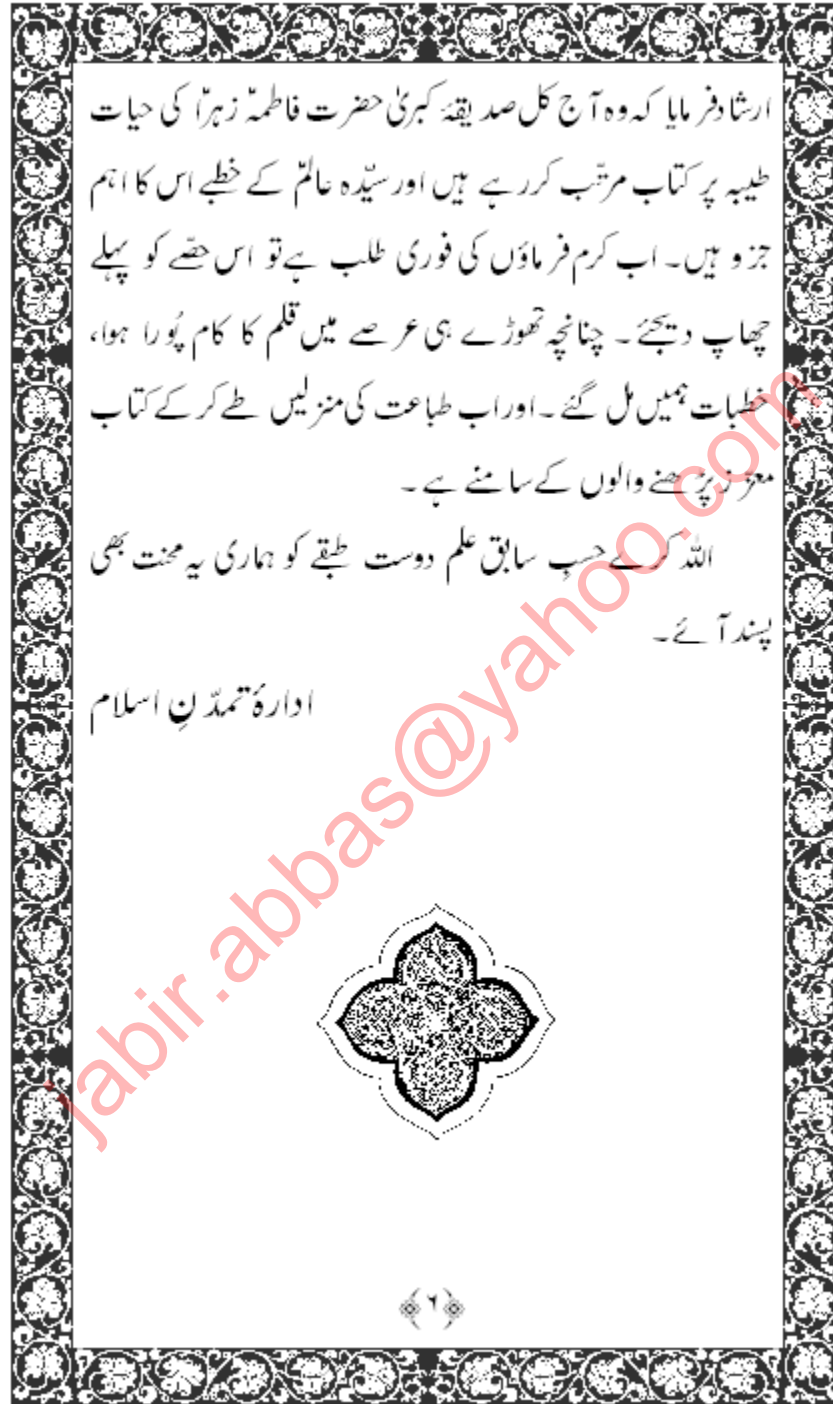 ارشاد فرمایا کہ وہ آج کل صدیقۂ کبریٰ حضرت فاطمہؑ زہراؑ کی حیات
طیبہ پر کتاب مرتّب کررہے ہیں اور سیّدہ عالمؑ کے خطبے اس کا اہم
جزو ہیں۔ اب کرم فرماؤں کی فوری طلب ہے تو اس حصّے کو پہلے
چھاپ دیجئے۔ چنانچہ تھوڑے ہی عرصے میں قلم کا کام پُورا ہوا،
خطبات ہمیں مل گئے۔ اور اب طباعت کی منزلیں طے کر کے کتاب
معزز پڑھنے والوں کے سامنے ہے۔
اللہ کرے حسبِ سابق علم دوست طبقے کو ہماری یہ محنت بھی
پسند آئے۔
ادارۂ تمدّنِ اسلام
jabir.abbas@yahoo.com
۶